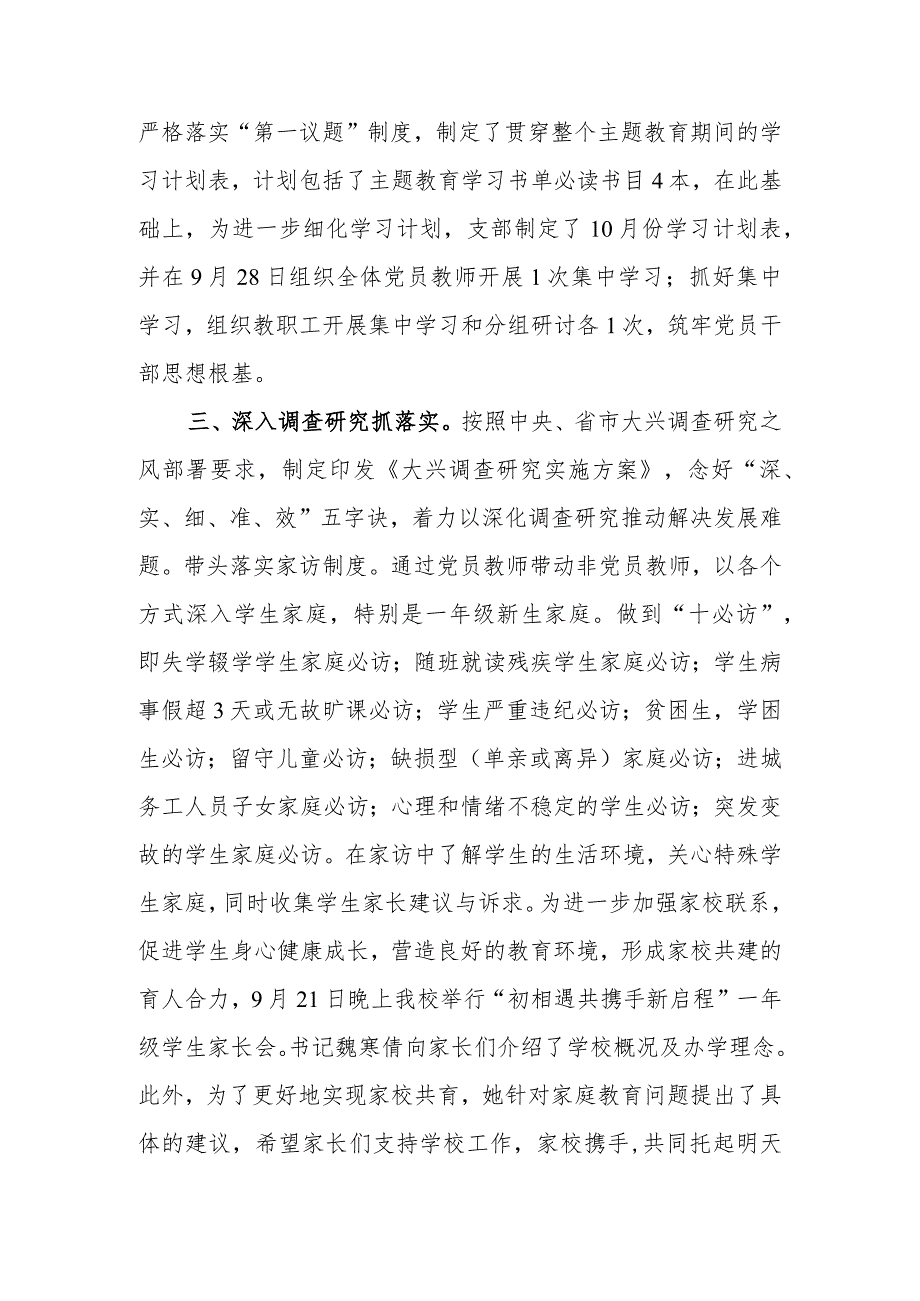 严格落实“第一议题”制度，制定了贯穿整个主题教育期间的学
习计划表，计划包括了主题教育学习书单必读书目4本，在此基
础上，为进一步细化学习计划，支部制定了10月份学习计划表，
并在9月28日组织全体党员教师开展1次集中学习；抓好集中
学习，组织教职工开展集中学习和分组研讨各1次，筑牢党员干
部思想根基。
三、深入调查研究抓落实。按照中央、省市大兴调查研究之
风部署要求，制定印发《大兴调查研究实施方案》，念好“深、
实、细、准、效”五字诀，着力以深化调查研究推动解决发展难
题。带头落实家访制度。通过党员教师带动非党员教师，以各个
方式深入学生家庭，特别是一年级新生家庭。做到“十必访”，
即失学辍学学生家庭必访；随班就读残疾学生家庭必访；学生病
事假超3天或无故旷课必访；学生严重违纪必访；贫困生，学困
生必访；留守儿童必访；缺损型（单亲或离异）家庭必访；进城
务工人员子女家庭必访；心理和情绪不稳定的学生必访；突发变
故的学生家庭必访。在家访中了解学生的生活环境，关心特殊学
生家庭，同时收集学生家长建议与诉求。为进一步加强家校联系，
促进学生身心健康成长，营造良好的教育环境，形成家校共建的
育人合力，9月21日晚上我校举行“初相遇共携手新启程”一年
级学生家长会。书记魏寒倩向家长们介绍了学校概况及办学理念。
此外，为了更好地实现家校共育，她针对家庭教育问题提出了具
体的建议，希望家长们支持学校工作，家校携手,共同托起明天